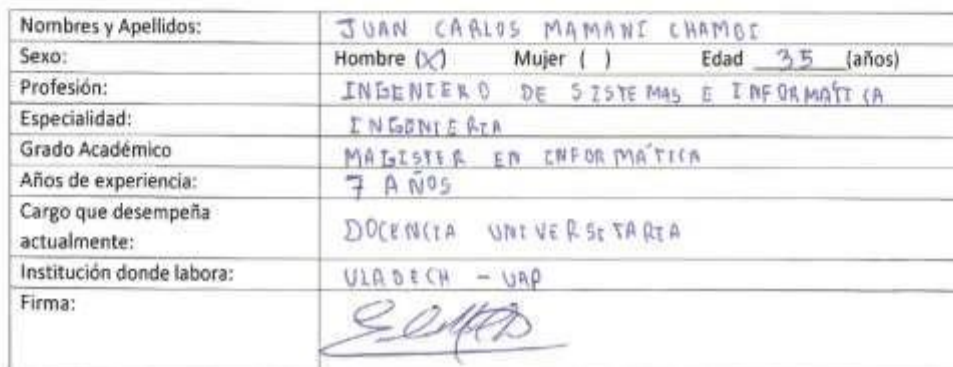 Nombres y Apellidos: JUAN CARLOS MAMANI CHAMBI
Sexo: Hombre (X) Mujer ( ) Edad 35 (años)
Profesión: INGENIERO DE SISTEMAS E INFORMÁTICA
Especialidad: INGENIERIA
Grado Académico MAGISTER EN INFORMÁTICA
Años de experiencia: 7 AÑOS
Cargo que desempeña
actualmente: DOCENCIA UNIVERSITARIA
Institución donde labora: ULADECH - UAP
Firma: